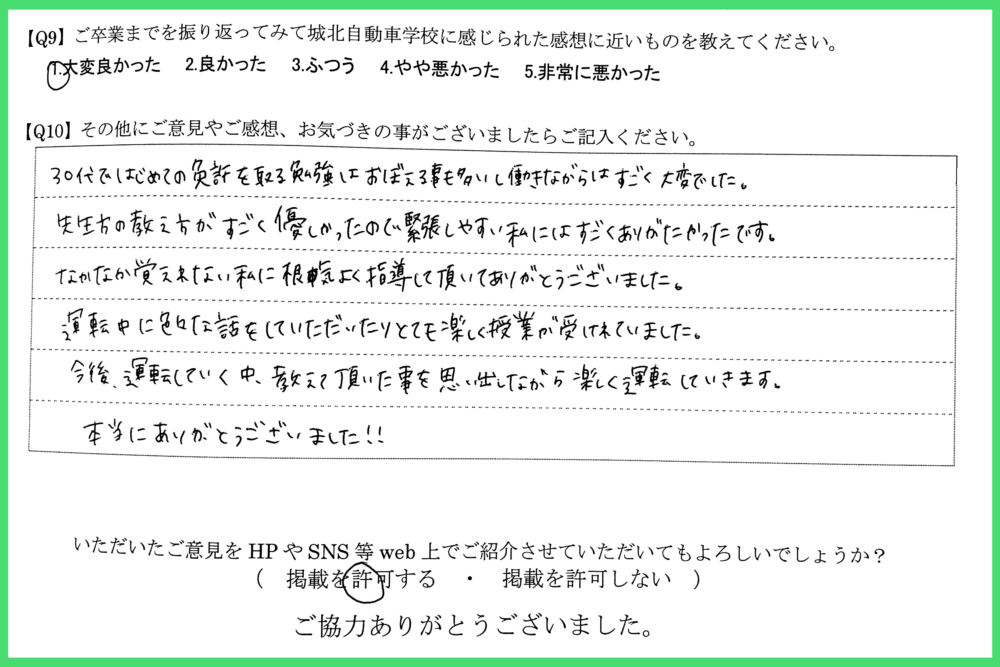 【Q9】ご卒業までを振り返ってみて城北自動車学校に感じられた感想に近いものを教えてください。
1.大変良かった 2.良かった 3.ふつう 4.やや悪かった 5.非常に悪かった
【Q10】その他にご意見やご感想、お気づきの事がございましたらご記入ください。
30代ではじめての免許を取る勉強はおぼえる事も多いし働きながらはすごく大変でした。
先生方の教え方がすごく優しかったので緊張しやすい私にはすごくありがたかったです。
なかなか覚えれない私に根気よく指導して頂いてありがとうございました。
運転中に色々な話をしていただいたりとても楽しく授業が受けれていました。
今後、運転していく中、教えて頂いた事を思い出しながら楽しく運転していきます。
本当にありがとうございました!!
いただいたご意見をHPやSNS等web上でご紹介させていただいてもよろしいでしょうか？
（ 掲載を許可する ・ 掲載を許可しない ）
ご協力ありがとうございました。